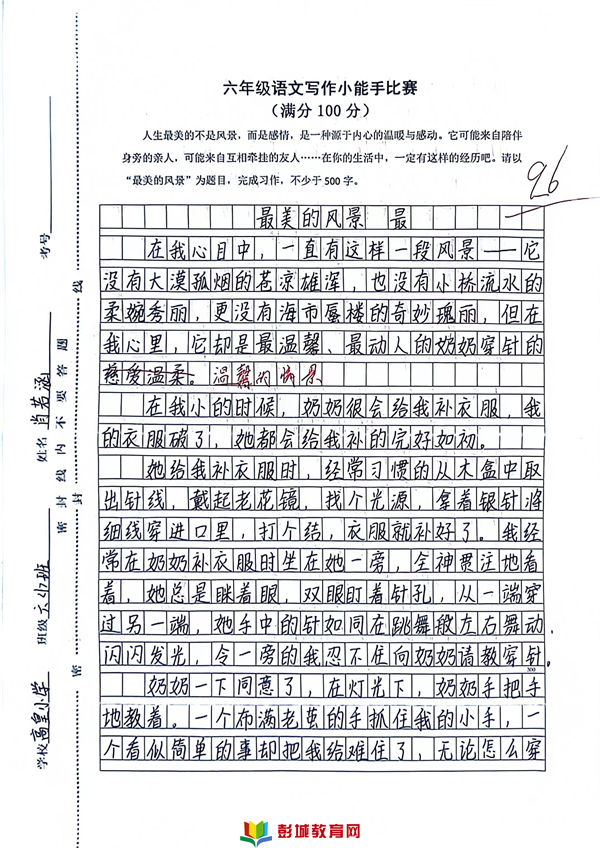 六年级语文写作小能手比赛
（满分100分）
人生最美的不是风景，而是感情，是一种源于内心的温暖与感动。它可能来自陪伴
身旁的亲人，可能来自互相牵挂的友人……在你的生活中，一定有这样的经历吧。请以
“最美的风景”为题目，完成习作，不少于500字。
96
最美的风景 最
在我心目中，一直有这样一段风景——它
没有大漠孤烟的苍凉雄浑，也没有小桥流水的
柔婉秀丽，更没有海市蜃楼的奇妙瑰丽，但在
我心里，它却是最温馨、最动人的奶奶穿针的
慈爱温柔。温馨的情景
在我小的时候，奶奶很会给我补衣服，我
的衣服破了，她都会给我补的完好如初。
她给我补衣服时，经常习惯的从木盒中取
出针线，戴起老花镜，找个光源，拿着银针将
细线穿进口里，打个结，衣服就补好了。我经
常在奶奶补衣服时坐在她一旁，全神贯注地看
着，她总是眯着眼，双眼盯着针孔，从一端穿
过另一端，她手中的针如同在跳舞般左右舞动
闪闪发光，令一旁的我忍不住向奶奶请教穿针。
300
奶奶一下同意了，在灯光下，奶奶手把手
地教着。一个布满老茧的手抓住我的小手，一
个看似简单的事却把我给难住了，无论怎么穿
学校高皇小学 班级六(1)班 姓名肖若涵 考号
密 封 线 内 不 要 答 题
密 封 线
彭城教育网